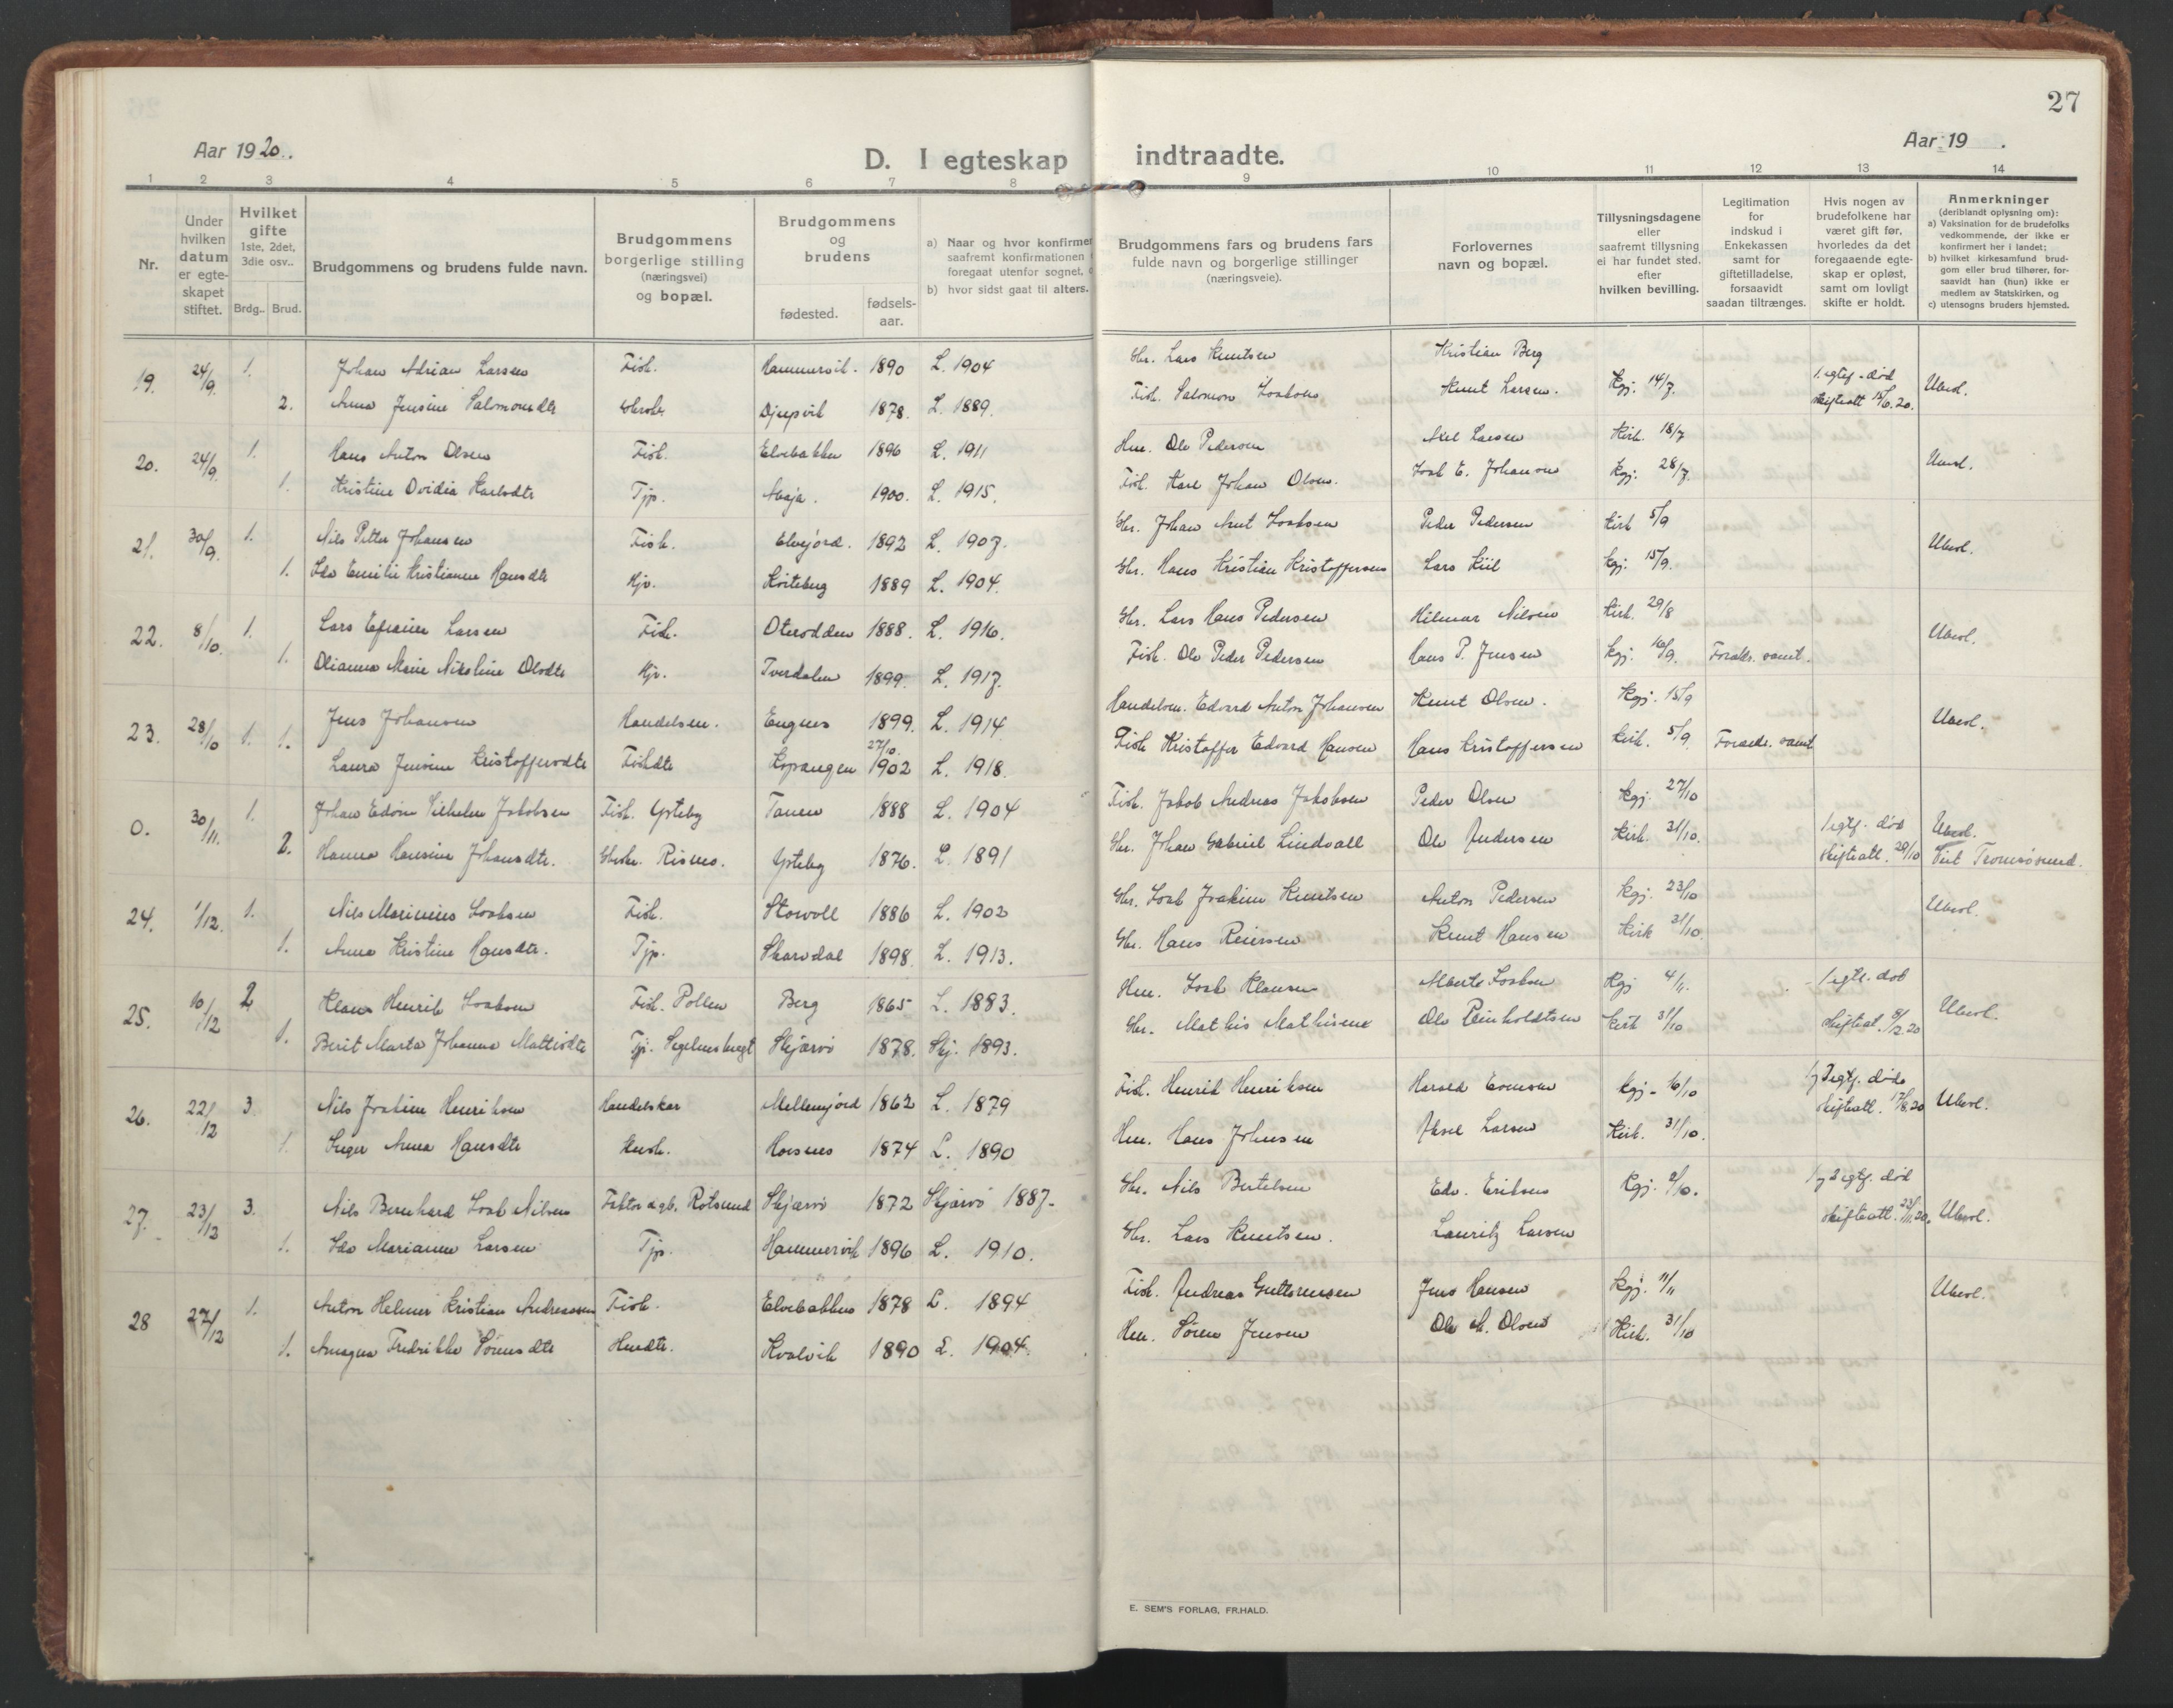 27
Aar 1920.
Aar 19 .
D. I egteskap indtraadte.
1 2 3 4 5 6 7 8 9 10 11 12 13 14
Nr.
Under hvilken datum er egte-skapet stiftet.
Hvilket gifte 1ste, 2det, 3die osv..
Brdg.. Brud.
Brudgommens og brudens fulde navn.
Brudgommens borgerlige stilling (næringsvei) og bopæl.
Brudgommens og brudens
fødested.
fødsels-aar.
a) Naar og hvor konfirmer
saafremt konfirmationen
foregaat utenfor sognet,
b) hvor sidst gaat til alters.
Brudgommens fars og brudens fars
fulde navn og borgerlige stillinger
(næringsveie).
Forlovernes
navn og bopæl.
Tillysningsdagene
eller
saafremt tillysning
ei har fundet sted,
efter
hvilken bevilling.
Legitimation
for
indskud i
Enkekassen
samt for
giftetilladelse,
forsaavidt
saadan tiltrænges.
Hvis nogen av
brudefolkene har
været gift før,
hvorledes da det
foregaaende egte-
skap er opløst,
samt om lovligt
skifte er holdt.
Anmerkninger
(deriblandt oplysning om):
a) Vaksination for de brudefolks
vedkommende, der ikke er
konfirmert her i landet;
b) hvilket kirkesamfund brud-
gom eller brud tilhører, for-
saavidt han (hun) ikke er
medlem av Statskirken, og
c) utensogns bruders hjemsted.
19. 24/9. 1. Johan Adrian Larsen Fisk. Hammervik. 1890 L. 1904 Gbr. Lars Knutsen Kristian Berg
2. Anna Jensine Salomonsdtr Djupvik 1878. L. 1889. Fisk. Salomon Isaksen Knut Larsen. Kgj. 14/7. 1. egtef. død skifteatt 15/6.20. Ubesl.
20. 24/9. 1. Hans Anton Olsen Fisk. Elvebakken 1896 L. 1911 Hm. Ole Pedersen Axel Larsen Kirk. 18/7 Ubesl.
1. Kristine Ovidia Karlsdtr Tjp. 1900. L. 1915. Fisk. Karl Johan Olsen. Isak E. Johansen Kgj. 28/7.
21. 30/9. 1. Nils Petter Johansen Fisk. Elvejord. 1892 L. 1907. Gbr. Johan Arnt Isaksen Peder Pedersen Kirk 5/9 Ubesl.
1. Ida Emilie Kristianne Hansdtr Hjv. Koiteberg 1889 L. 1904. Gbr. Hans Kristian Kristoffersen Lars Kiil Kgj. 15/9.
22. 8/10. 1. Lars Efraim Larsen Fisk. Oterodden 1888. L. 1916. Gbr. Lars Hans Pedersen Hilmar Nilsen Kirk. 29/8 Ubesl.
1. Olianna Marie Nikoline Olsdtr Hjv. Tverdalen 1899. L. 1917. Fisk. Ole Peder Pedersen Hans P. Jensen Kgj. 16/9. Foreldr. samt.
23. 28/10 1. Jens Johansen Handelsm. Engnes 1899. L. 1914 Handelsm. Edvard Anton Johansen Knut Olsen. Kgj. 15/9 Ubesl.
1. Laura Jensine Kristoffersdtr Fiskdtr Kopangen 27/10. 1902 L. 1918. Fisk Kristoffer Edvard Hansen Hans Kristoffersen Kirk. 5/9. Foreldr. samt
0. 30/11. 1. Johan Edvin Vilhelm Jakobsen Fisk. Ysteby 1888 L. 1904 Fisk. Jakob Andreas Jakobsen Peder Olsen Kgj. 27/10
2. Hanna Hansine Johansdtr. Risnes. Ysteby 1876. L. 1891 Gbr. Johan Gabriel Lindvall Ole Andersen Kirk. 31/10. 1 egtf. død skifteatt. 29/10 Ubesl. Viet Tromsøsund.
24. 1/12. 1. Nils Marinius Isaksen Fisk. Storvoll 1886 L. 1902 Gbr. Isak Joakim Knutsen Anton Pedersen Kgj. 23/10 Ubesl.
1. Anna Kristine Hansdtr. Tjp. Skarvdal 1898. L. 1913. Gbr. Hans Reiersen Knut Hansen Kirk 31/10.
25. 10/12 2 Klaus Henrik Isaksen Fisk. Pollen Berg 1865 L. 1883. Hm. Isak Klausen Alberts Isaksen Kgj 4/11. 1 egtf. død
1. Berit Marta Johanna Mattisdtr Tjp. Segelnesbugt Skjærvø 1878. Skj. 1893. Gbr. Mathis Mathisen Ole Reinholdtsen Kirk 31/10 skifteat. 8/12 20 Ubesl.
26. 22/12 3. Nils Joakim Henriksen Handelskar Mellemjord 1862 L. 1879 Fisk. Henrik Henriksen Harald Evensen Kgj. 16/10 2 egtf. døde skifteatt. 17/8.20 Ubesl.
1. Inger Anna Hansdtr Hush. 1874 L. 1890 Hm. Hans Johnsen Aksel Larsen Kirk. 31/10.
27. 23/12 3. Nils Bernhard Isak Nilsen Rotsund Skjærvø 1872 Skjærvø 1887. Gbr. Nils Bertelsen Edv. Eriksen Kgj. 2 egtf. død skifteatt. 23/11.20. Ubesl.
1. Ida Marianne Larsen Tjp. Hammervik 1896 L. 1910. Gbr. Lars Knutsen. Lauritz Larsen
28 27/12 1. Anton Helmer Kristian Andreassen Fisk. Elvebakken 1878 L. 1894 Fisk. Andreas Guttormsen Jens Hansen Kgj. 11/11 Ubesl.
1. Amagna Fredrikke Sørensdtr Hmdtr. Kvalvik 1890 L. 1904. Hm. Søren Jensen Ole M. Olsen Kirk. 31/10
E. SEM'S FORLAG, FR.HALD.